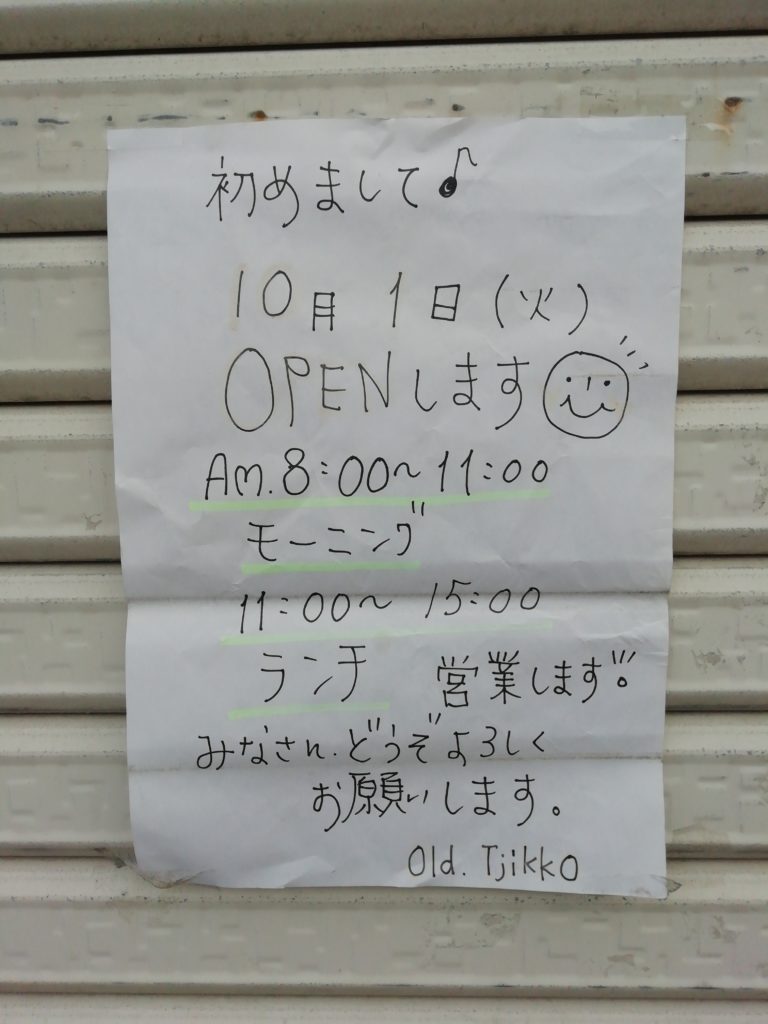 初めまして♪
10月 1日(火)
OPENします
Am.8:00~11:00
モーニング
11:00~ 15:00
ランチ 営業します。
みなさん.どうぞよろしく
お願いします。
Old. Tjikko